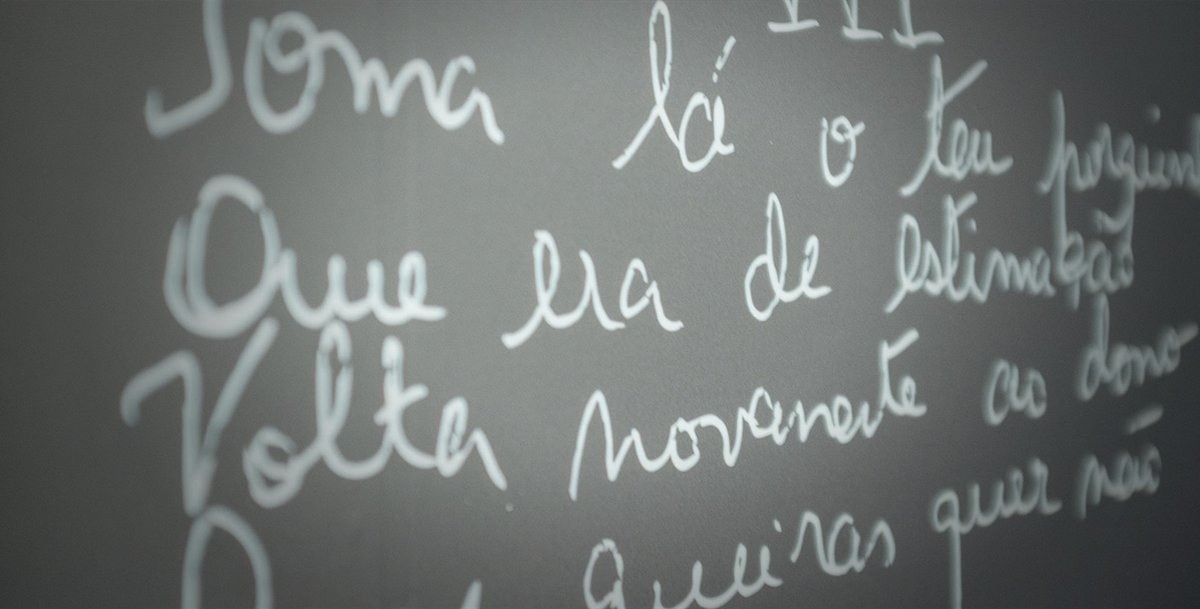 III
Toma lá o teu
Que era de estimação
Volta novamente ao dono
Queiras quer não